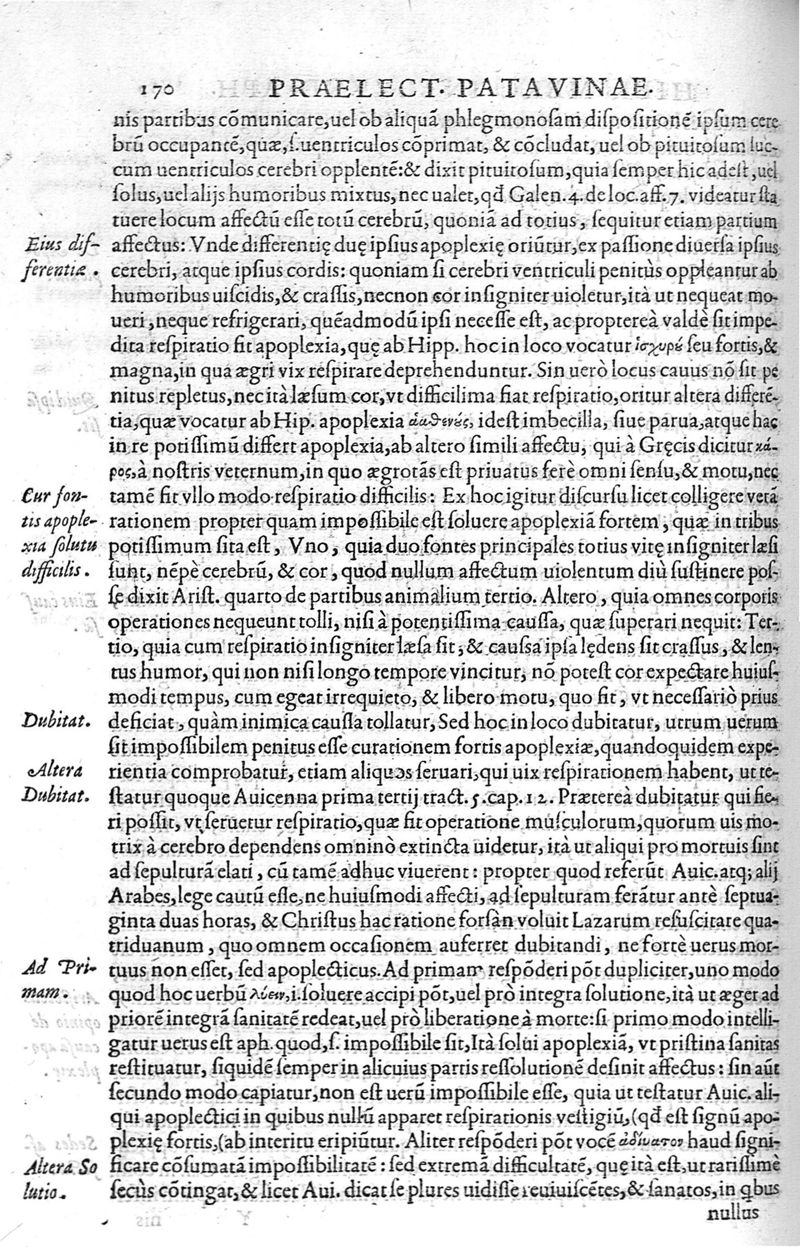 170 PRAELECT. PATAVINAE.
nis partibus cõmunicare, uel ob aliquã phlegmonosam dispositionẽ ipsum cere
brũ occupantẽ, quæ, s. uentriculos cõprimat, & cõcludat, uel ob pituitosum suc-
cum uentriculos cerebri opplentẽ: & dixit pituitosum, quia semper hic adest, uel
solus, uel alijs humoribus mixtus, nec ualet, qđ Galen. 4. de loc. aff. 7. videatur sta
tuere locum affectũ esse totũ cerebrũ, quoniã ad totius, sequitur etiam partium
Eius dif- affectus: Vnde differentię duę ipsius apoplexię oriũtur, ex passione diuersa ipsius
ferentiæ . cerebri, atque ipsius cordis: quoniam si cerebri ventriculi penitùs oppleantur ab
humoribus uiscidis, & crassis, necnon cor insigniter uioletur, ità ut nequeat mo-
ueri, neque refrigerari, quẽadmodũ ipsi necesse est, ac proptereà valdè sit impe-
dita respiratio fit apoplexia, quę ab Hipp. hoc in loco vocatur ἰσχυρὰ seu fortis, &
magna, in qua ægri vix respirare deprehenduntur. Sin uerò locus cauus nõ sit pe
nitus repletus, nec ità læsum cor, vt difficilima fiat respiratio, oritur altera differẽ-
tia, quæ vocatur ab Hip. apoplexia ἀσθενὴς, idest imbecilla, siue parua, atque hac
in re potissimũ differt apoplexia, ab altero simili affectu, qui à Gręcis dicitur κά-
ρος, à nostris veternum, in quo ægrotãs est priuatus ferè omni sensu, & motu, nec
Cur for- tamẽ fit vllo modo respiratio difficilis: Ex hoc igitur discursu licet colligere verã
tis apople- rationem propter quam impossibile est soluere apoplexiã fortem, quæ in tribus
xia solutu potissimum sita est, Vno, quia duo fontes principales totius vitę insigniter læsi
difficilis . sunt, nẽpè cerebrũ, & cor, quod nullum affectum uiolentum diù sustinere pos-
se dixit Arist. quarto de partibus animalium tertio. Altero, quia omnes corporis
operationes nequeunt tolli, nisi à potentissima caussa, quæ superari nequit: Ter-
tio, quia cum respiratio insigniter læsa sit, & caussa ipsa lędens sit crassus, & len-
tus humor, qui non nisi longo tempore vincitur, nõ potest cor expectare huius-
modi tempus, cum egeat irrequieto, & libero motu, quo fit, vt necessariò prius
Dubitat. deficiat, quàm inimica caussa tollatur, Sed hoc in loco dubitatur, utrum uerum
sit impossibilem penitus esse curationem fortis apoplexiæ, quandoquidem expe-
Altera rientia comprobatur, etiam aliquos seruari, qui uix respirationem habent, ut te-
Dubitat. statur quoque Auicenna prima tertij tract. 5. cap. 12. Prætereà dubitatur qui fie-
ri possit, vt seruetur respiratio, quæ fit operatione musculorum, quorum uis mo-
trix à cerebro dependens omninò extincta uidetur, ità ut aliqui pro mortuis sint
ad sepulturã elati, cũ tamẽ adhuc viuerent: propter quod referũt Auic. atq; alij
Arabes, lege cautũ esse, ne huiusmodi affecti, ad sepulturam ferãtur antè septua-
ginta duas horas, & Christus hac ratione forsan voluit Lazarum resuscitare qua-
triduanum, quo omnem occasionem auferret dubitandi, ne fortè uerus mor-
Ad Pri- tuus non esset, sed apoplecticus. Ad primam respõderi põt dupliciter, uno modo
mam . quod hoc uerbũ λύειν, i. soluere accipi põt, uel prò integra solutione, ità ut æger ad
priorẽ integrã sanitatẽ redeat, uel prò liberatione à morte: si primo modo intelli-
gatur uerus est aph. quod, s. impossibile sit, Ità solui apoplexiã, vt pristina sanitas
restituatur, siquidẽ semper in alicuius partis ressolutionẽ desinit affectus: sin aũt
secundo modo capiatur, non est uerũ impossibile esse, quia ut testatur Auic. ali-
qui apoplectici in quibus nullũ apparet respirationis vestigiũ, (qđ est signũ apo-
plexię fortis, (ab interitu eripiũtur. Aliter respõderi põt vocẽ ἀδύνατον haud signi-
Altera So ficare cõsumatã impossibilitatẽ: sed extremã difficultatẽ, quę ità est, ut rarissimè
lutio. secùs cõtingat, & licet Aui. dicat se plures uidisse reuiuiscẽtes, & sanatos, in qbus
nullus